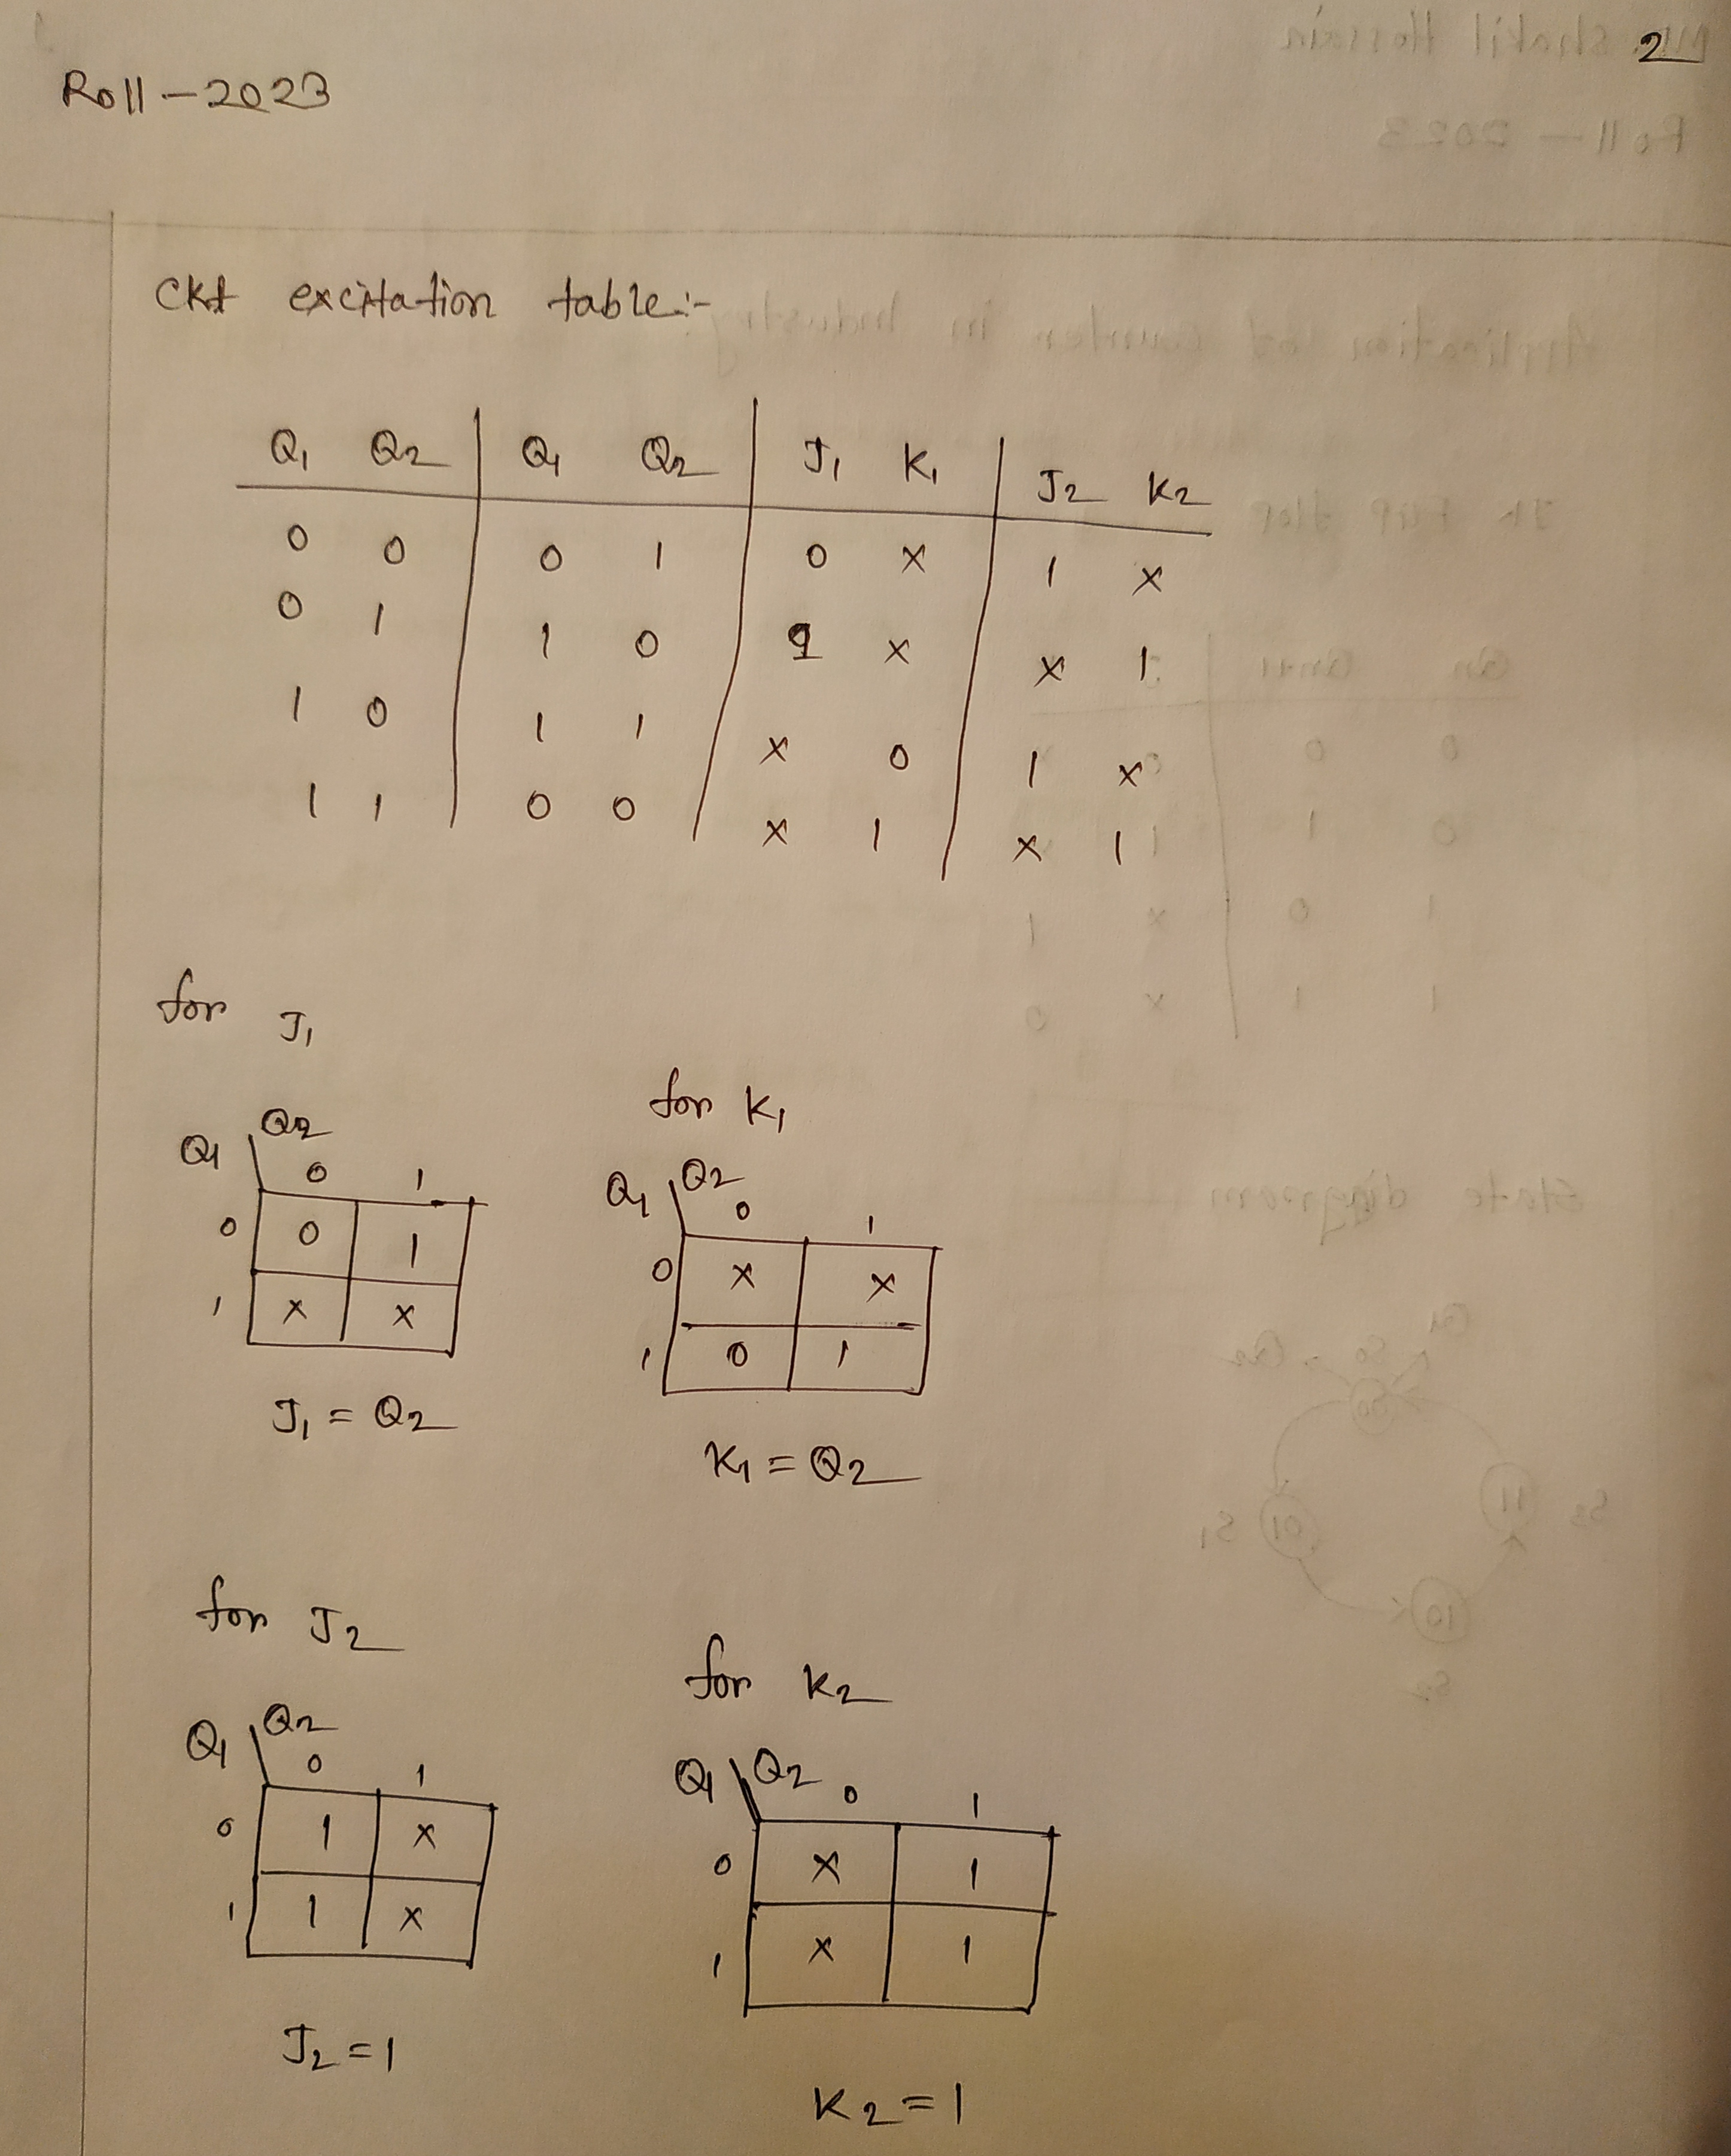 2
Roll-2023
Ckt excitation table:-
Q1 Q2 Q1 Q2 J1 K1 J2 K2
0 0 0 1 0 x 1 x
0 1 1 0 1 x x 1
1 0 1 1 x 0 1 x
1 1 0 0 x 1 x 1
for J1
Q1 Q2
0 1
0 0 1
1 x x
J1 = Q2
for K1
Q1 Q2
0 1
0 x x
1 0 1
K1 = Q2
for J2
Q1 Q2
0 1
0 1 x
1 1 x
J2 = 1
for K2
Q1 Q2
0 1
0 x 1
1 x 1
K2 = 1